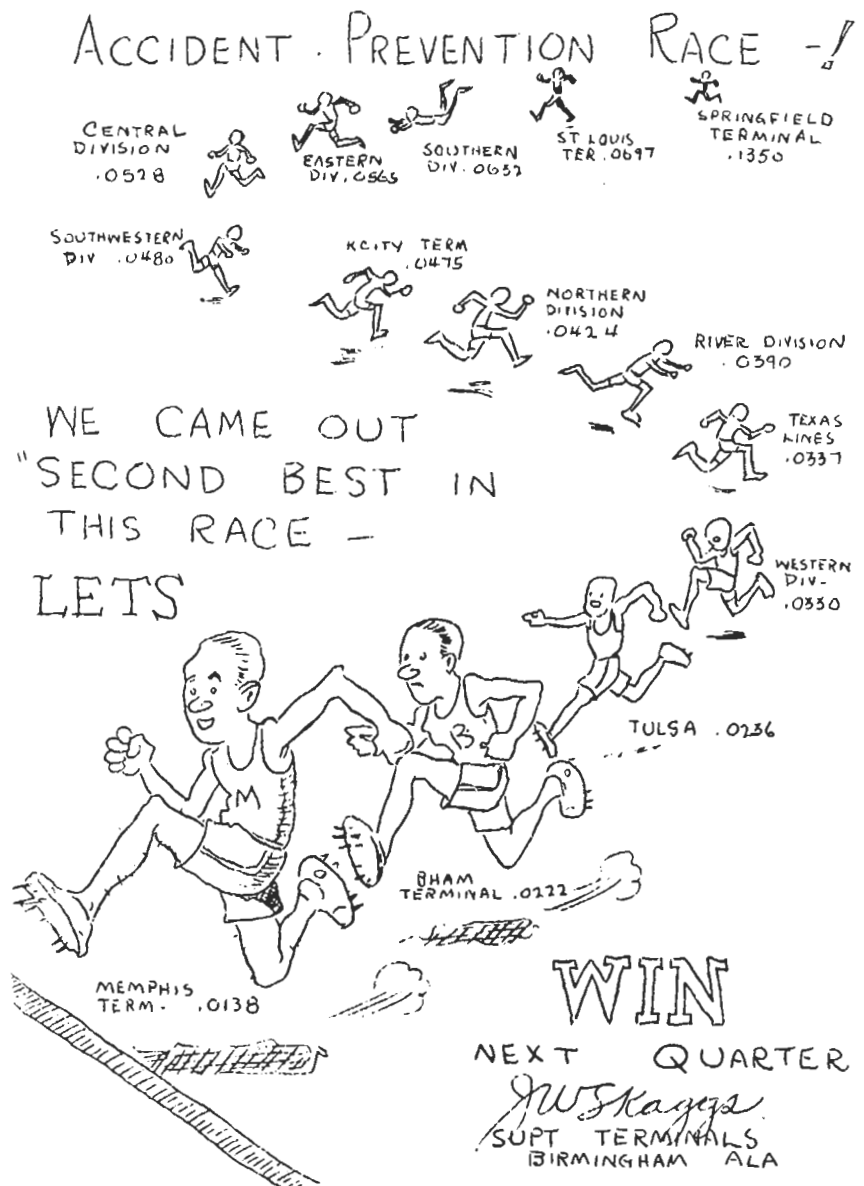 ACCIDENT. PREVENTION RACE -!
CENTRAL
DIVISION
.0528
EASTERN
DIV. .0565
SOUTHERN
DIV. .0632
ST LOUIS
TER. .0697
SPRINGFIELD
TERMINAL
.1350
SOUTHWESTERN
DIV .0480
KCITY TERM
.0475
NORTHERN
DIVISION
.0424
RIVER DIVISION
.0390
TEXAS
LINES
.0337
WE CAME OUT
"SECOND BEST IN
THIS RACE -
LETS
WESTERN
DIV-
.0330
TULSA .0236
B
M
BHAM
TERMINAL .0222
MEMPHIS
TERM- .0138
WIN
NEXT QUARTER
JW Skaggs
SUPT TERMINALS
BIRMINGHAM ALA